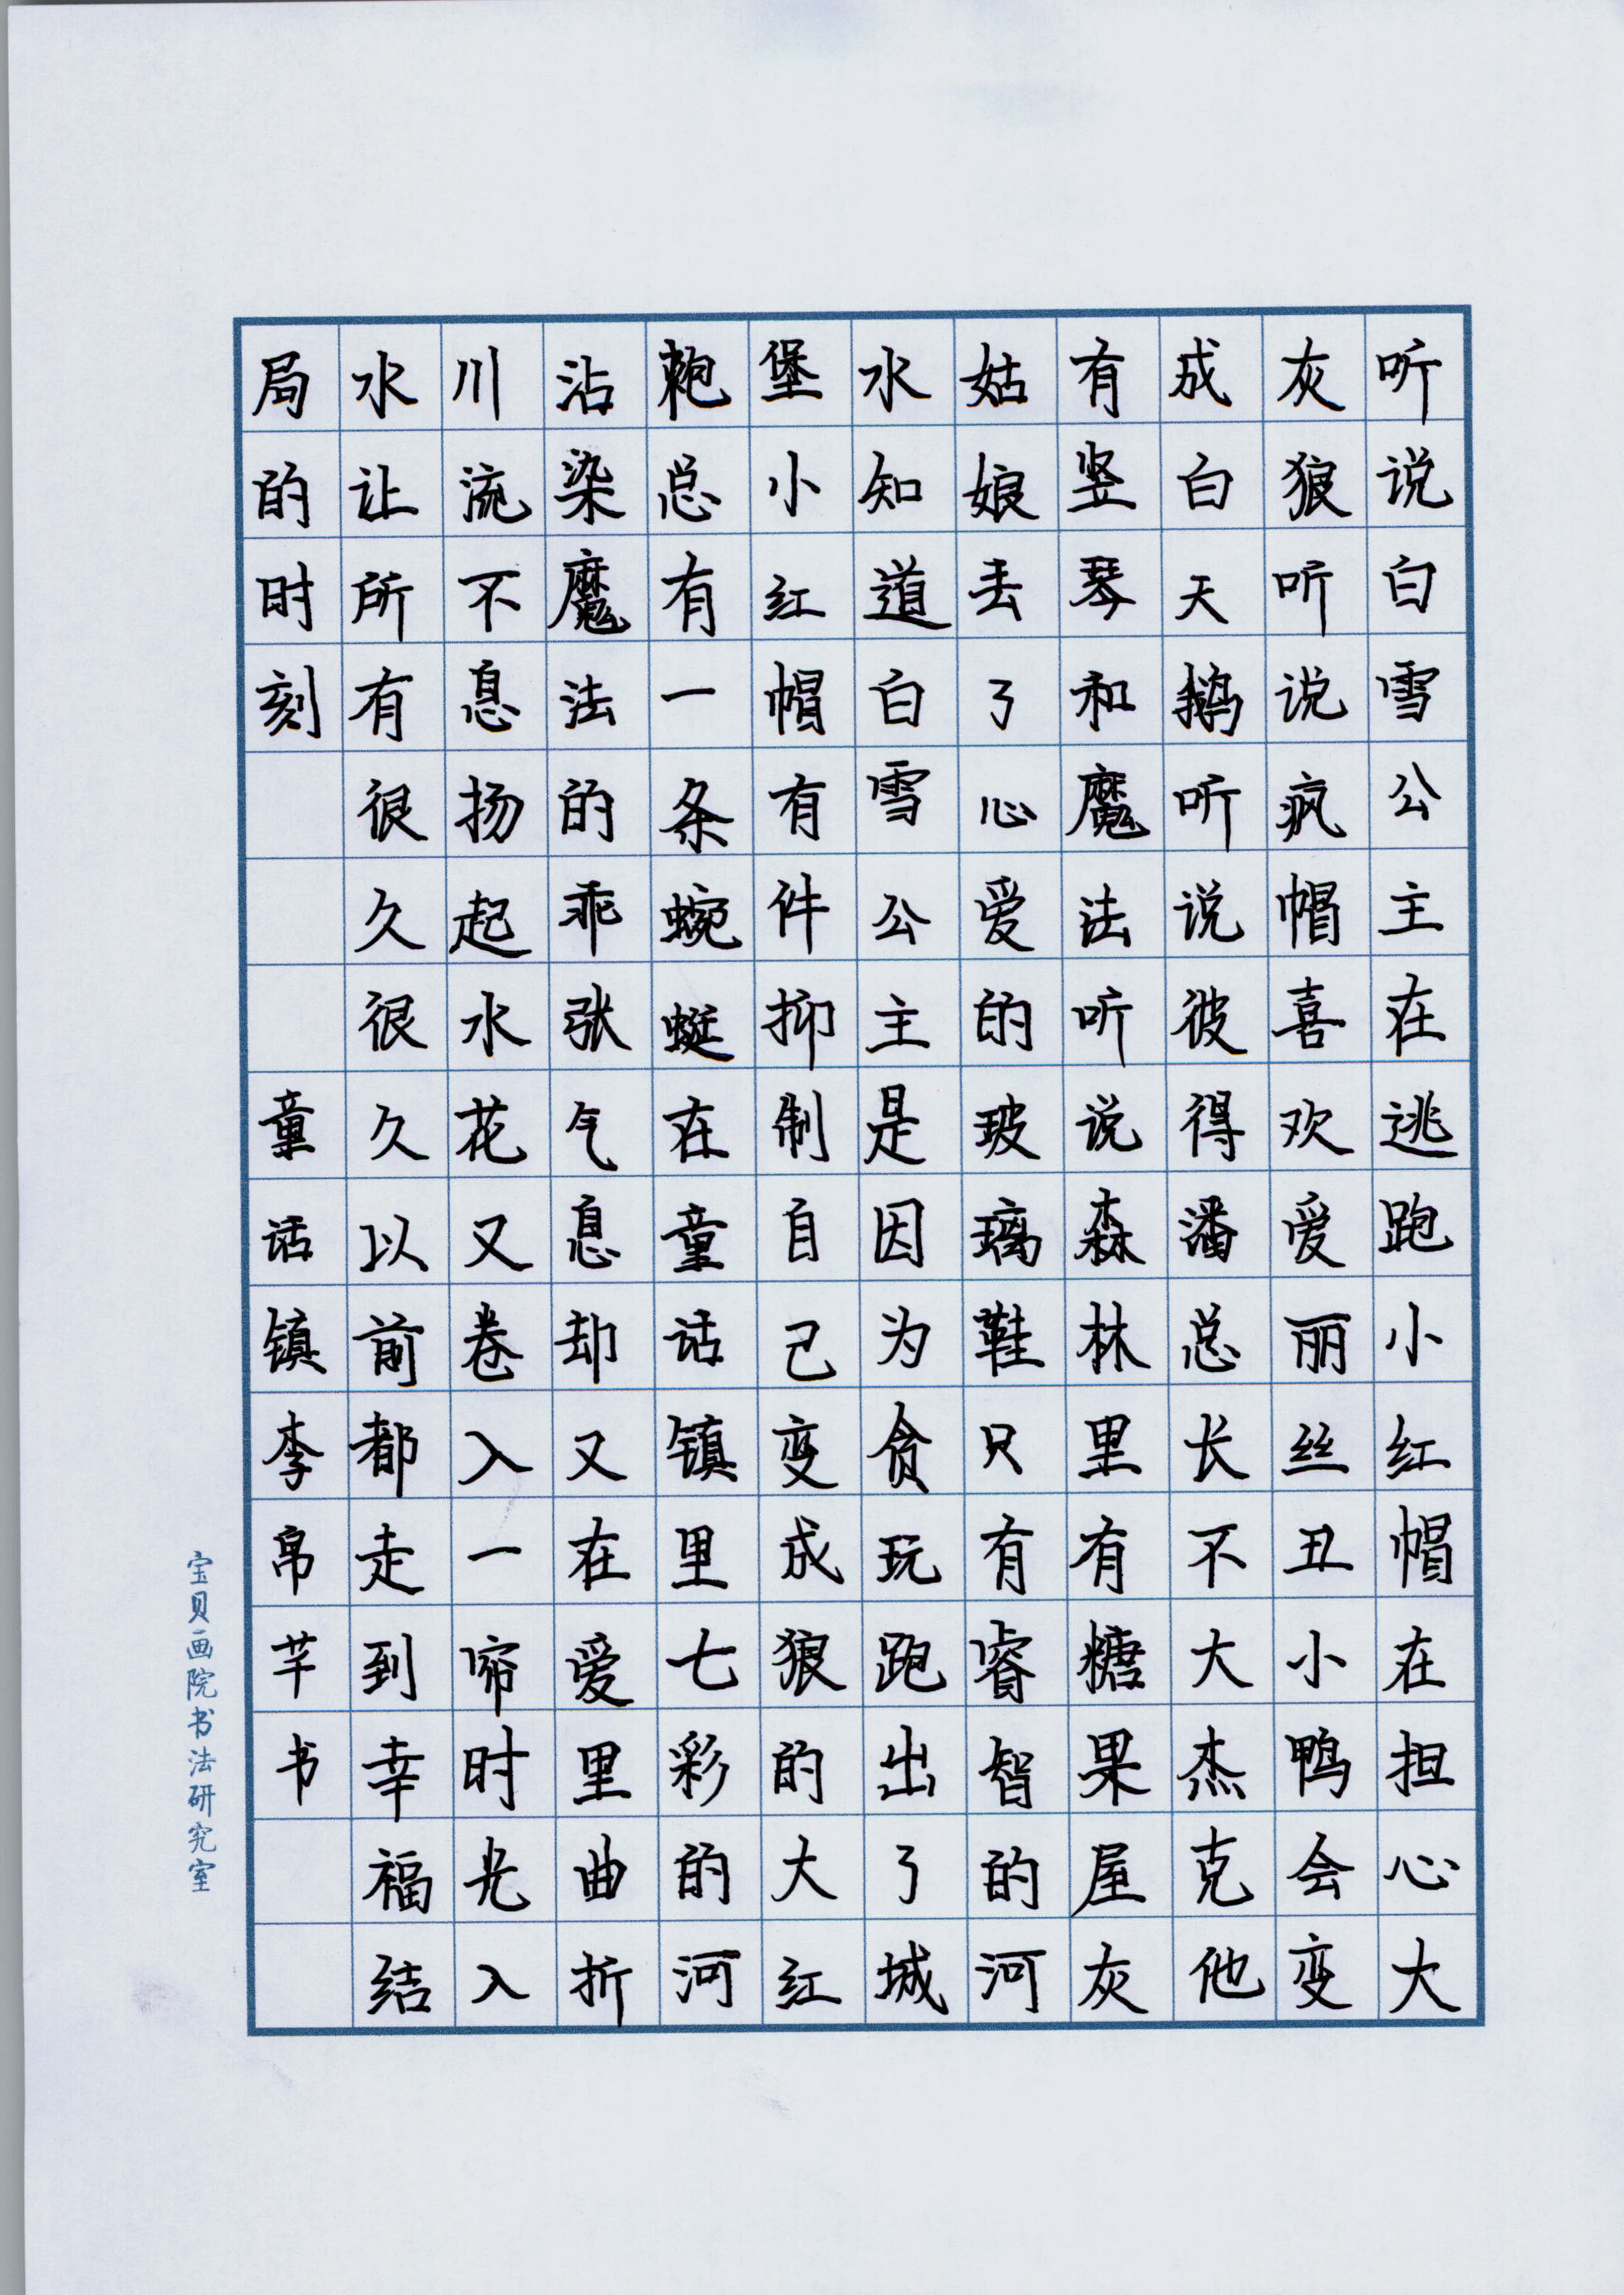 听说白雪公主在逃跑小红帽在担心大
灰狼听说疯帽喜欢爱丽丝丑小鸭会变
成白天鹅听说彼得潘总长不大杰克他
有竖琴和魔法听说森林里有糖果屋灰
姑娘丢了心爱的玻璃鞋只有睿智的河
水知道白雪公主是因为贪玩跑出了城
堡小红帽有件抑制自己变成狼的大红
袍总有一条蜿蜒在童话镇里七彩的河
沾染魔法的乖张气息却又在爱里曲折
川流不息扬起水花又卷入一帘时光入
水让所有很久很久以前都走到幸福结
局的时刻
童话镇李帛芊书
宝贝画院书法研究室